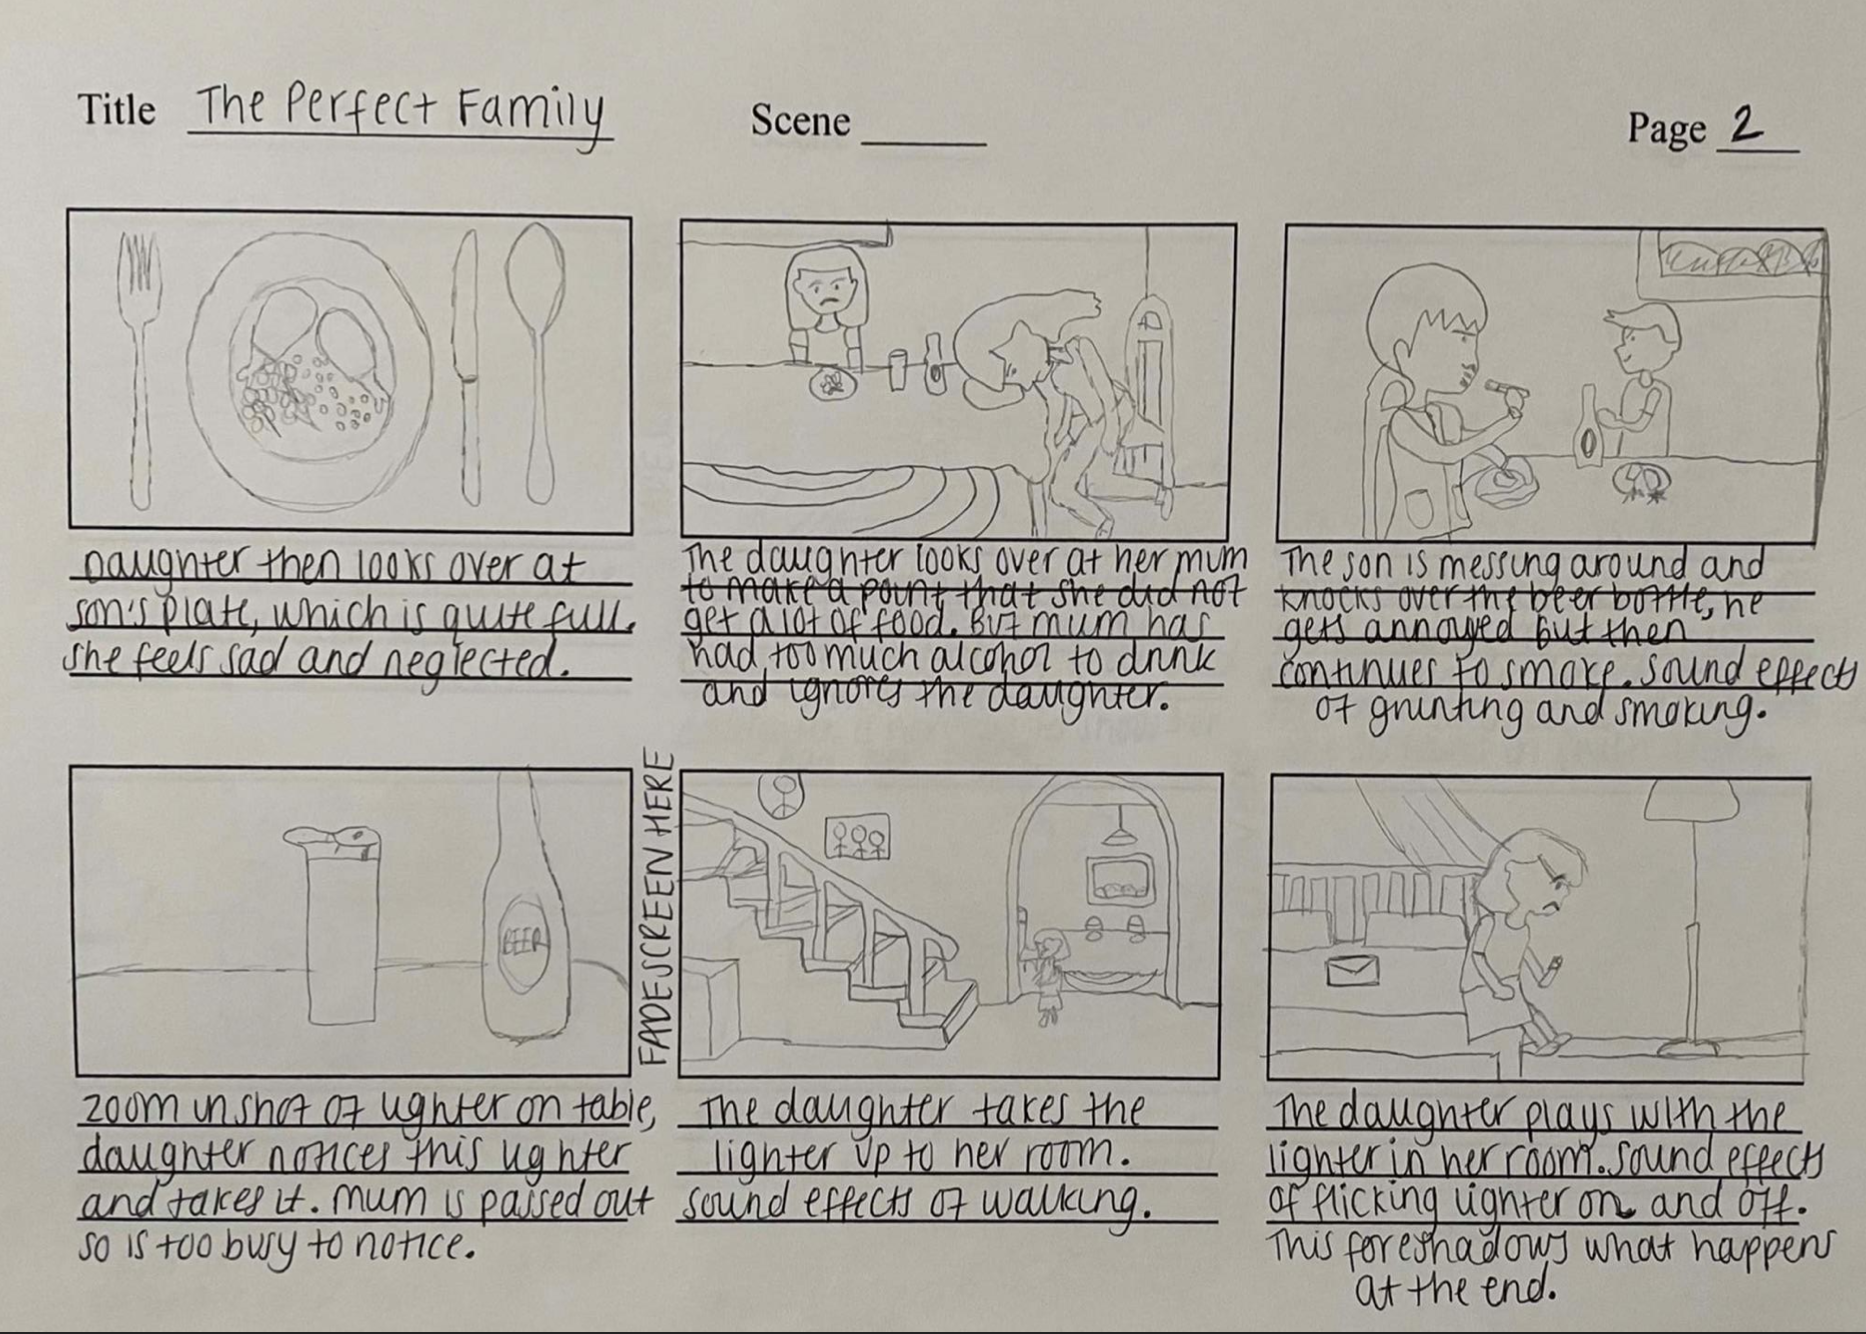 Title The Perfect Family
Scene
Page 2
Daughter then looks over at
son's plate, which is quite full.
she feels sad and neglected.
The daughter looks over at her mum
to make a point that she did not
get a lot of food. But mum has
had too much alcohol to drink
and ignores the daughter.
The son is messing around and
knocks over the beer bottle, he
gets annoyed but then
continues to smoke. Sound effects
of grunting and smoking.
BEER
FADESCREEN HERE
zoom in shot of lighter on table,
daughter notices this lighter
and takes it. Mum is passed out
so is too busy to notice.
The daughter takes the
lighter up to her room.
sound effects of walking.
The daughter plays with the
lighter in her room. Sound effects
of flicking lighter on and off.
This foreshadows what happens
at the end.